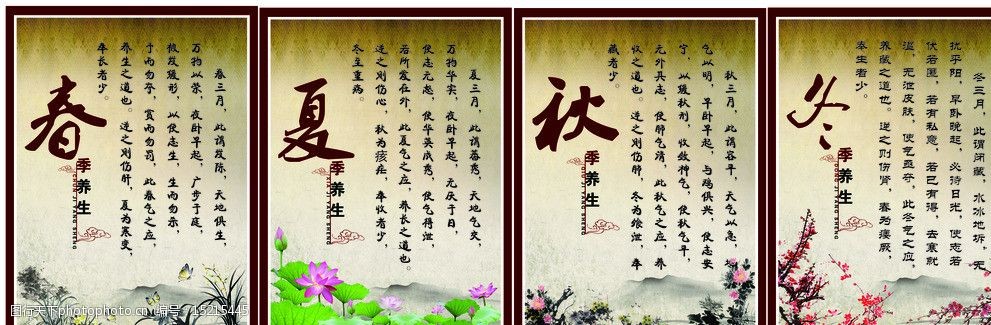 春三月，此谓发陈，天地俱生，
万物以荣，夜卧早起，广步于庭，
被发缓形，以使志生，生而勿杀，
予而勿夺，赏而勿罚，此春气之应，
养生之道也。逆之则伤肝，夏为寒变，
奉长者少。
春
季养生
夏三月，此谓蕃秀，天地气交，
万物华实，夜卧早起，无厌于日，
使志无怒，使华英成秀，使气得泄，
若所爱在外，此夏气之应，养长之道也。
逆之则伤心，秋为痎疟，奉收者少，
冬至重病。
夏
季养生
XIA JI YANG SHENG
秋三月，此谓容平，天气以急，地
气以明，早卧早起，与鸡俱兴，使志安
宁，以缓秋刑，收敛神气，使秋气平，
无外其志，使肺气清，此秋气之应，养
收之道也。逆之则伤肺，冬为飧泄，奉
藏者少。
秋
季养生
冬三月，此谓闭藏，水冰地坼，无
扰乎阳，早卧晚起，必待日光，使志若
伏若匿，若有私意，若已有得，去寒就
温，无泄皮肤，使气亟夺，此冬气之应，
养藏之道也。逆之则伤肾，春为痿厥，
奉生者少。
冬
季养生
图行天下 photophoto.cn 编号：15215445